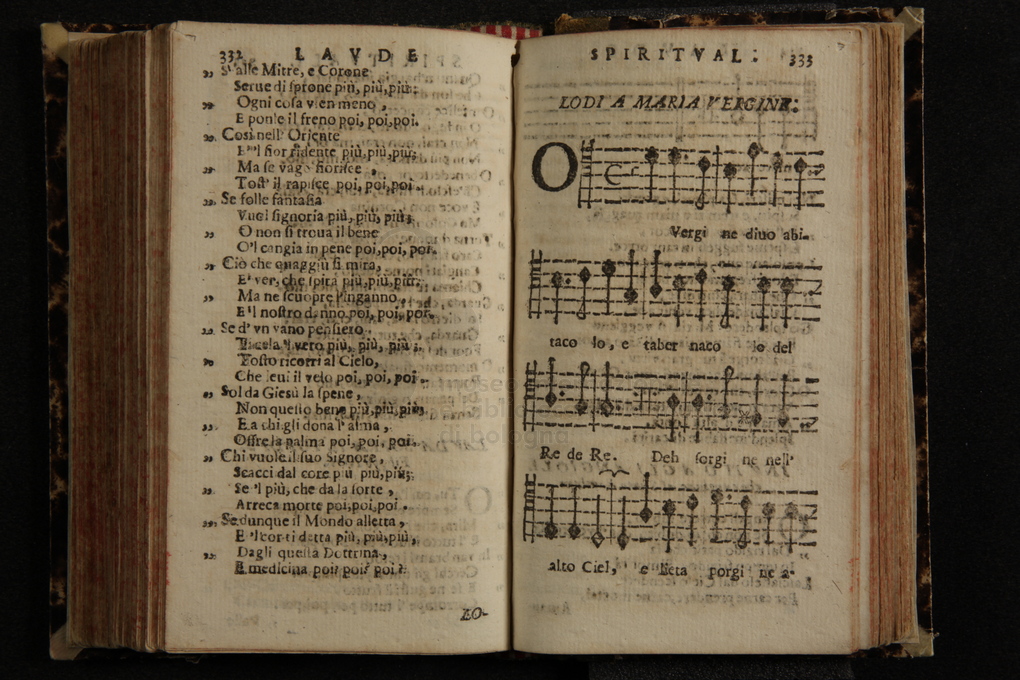 332 LAVDE
„ S'alle Mitre, e Corone
Serue di sprone più, più, più:
„ Ogni cosa vien meno,
E pon'e il freno poi, poi, poi.
„ Così nell' Oriente
E 'l fior ridente più, più, più;
„ Ma se vago fiorisce,
Tost' il rapisce poi, poi, poi.
„ Se folle fantasia
Vuol signoria più, più, più;
„ O non si troua il bene
O'l cangia in pene poi, poi, poi.
„ Ciò che quaggiù si mira,
E' ver, che spira più, più, più:
„ Ma ne scuopre l'inganno,
E 'l nostro danno poi, poi, poi.
„ Se d' vn vano pensiero
'l vero più, più, più;
„ Tosto ricorri al Cielo,
Che leui il velo poi, poi, poi.
„ Sol da Giesù la spene,
Non questo bene più, più, più,
„ E a chi gli dona l' alma,
Offre la palma poi, poi, poi.
„ Chi vuole il suo Signore,
Scacci dal core più più, più;
„ Se 'l più, che da la sorte,
Arreca morte poi, poi, poi.
„ Se dunque il Mondo alletta,
E 'l cor ti detta più, più, più,
„ Dagli questa Dottrina,
E medicina poi, poi, poi.
LO-
SPIRITVAL: 333
LODI A MARIA VERGINE:
O
Vergi ne diuo abi-
taco lo, e taber naco lo del
Re de Re. Deh sorgi ne nell'
alto Ciel, e lieta porgi ne a-